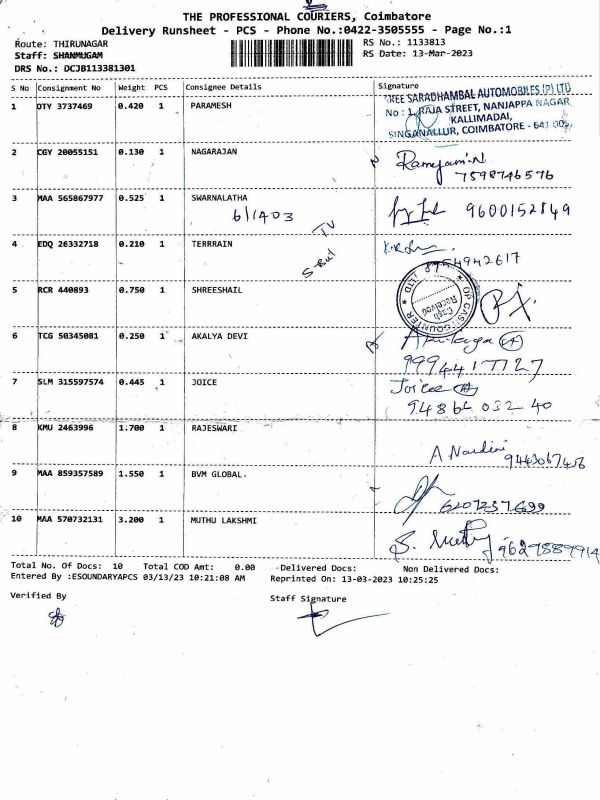 THE PROFESSIONAL COURIERS, Coimbatore
Delivery Runsheet - PCS - Phone No.:0422-3505555 - Page No.:1
Route: THIRUNAGAR RS No.: 1133813
Staff: SHANMUGAM RS Date: 13-Mar-2023
DRS No.: DCJB113381301
S No Consignment No Weight PCS Consignee Details Signature
1 OTY 3737469 0.420 1 PARAMESH
SREE SARADHAMBAL AUTOMOBILES (P) LTD
No : 1, RAJA STREET, NANJAPPA NAGAR,
KALLIMADAI,
SINGANALLUR, COIMBATORE - 641 005
2 CGY 20055151 0.130 1 NAGARAJAN
7598746576
3 MAA 565867977 0.525 1 SWARNALATHA
9600152849
4 EDQ 26332718 0.210 1 TERRRAIN
8754942617
5 RCR 440893 0.750 1 SHREESHAIL
Cash
Received
6 TCG 50345081 0.250 1 AKALYA DEVI
9994417727
7 SLM 315597574 0.445 1 JOICE
Joicee
94864 032 40
8 KMU 2463996 1.700 1 RAJESWARI
A Nandini
9443067456
9 MAA 859357589 1.550 1 BVM GLOBAL
6207237699
10 MAA 570732131 3.200 1 MUTHU LAKSHMI
9627889914
Total No. Of Docs: 10 Total COD Amt: 0.00 Delivered Docs: Non Delivered Docs:
Entered By :ESOUNDARYAPCS 03/13/23 10:21:08 AM Reprinted On: 13-03-2023 10:25:25
Verified By Staff Signature